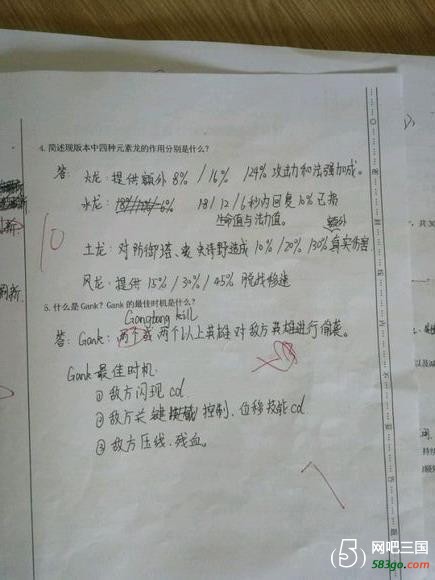 4. 简述现版本中四种元素龙的作用分别是什么?
答: 火龙:提供额外 8% / 16% / 24% 攻击力和法强加成。
水龙: 18 / 12 / 6 秒内回复 10% 已损
生命值与法力值。
额外
土龙: 对防御塔、史诗野怪造成 10% / 20% / 30% 真实伤害
10
风龙: 提供 15% / 30% / 45% 脱战移速
刷新
5. 什么是Gank? Gank 的最佳时机是什么?
Gangbang kill
答: Gank: 两个或两个以上英雄对敌方英雄进行偷袭。
Gank 最佳时机
① 敌方闪现 cd
② 敌方关键控制、位移技能 cd
③ 敌方压线、残血。
7
网吧三国
583go.com